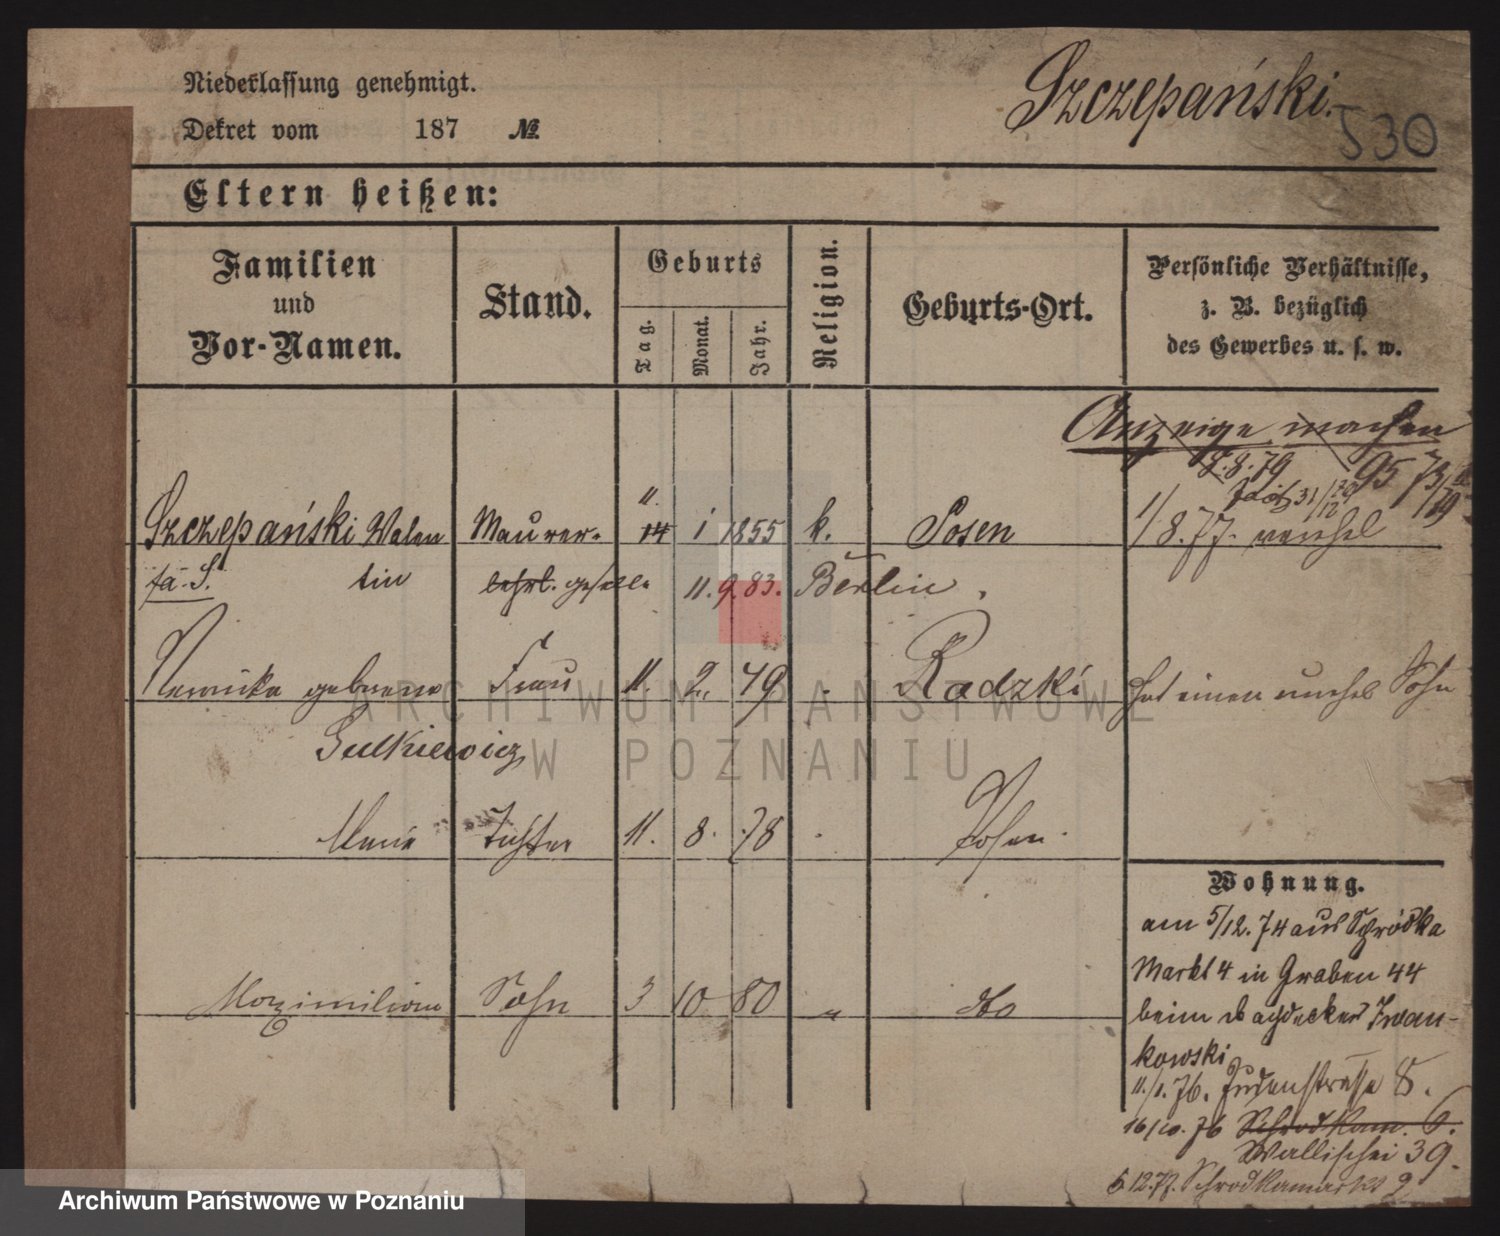 Niederlassung genehmigt.
Dekret vom 187 №
Szczepański.
530
Eltern heißen:
Familien und Vor-Namen.
Stand.
Geburts
Tag.
Monat.
Jahr.
Religion.
Geburts-Ort.
Persönliche Verhältnisse,
z. B. bezüglich
des Gewerbes u. s. w.
Anzeige machen
7.8.79
95 73
31/12
Szczepański Valen Maurer- 14 11. 1 1855 k. Posen
1/8.77.
fa. S. tin lehrl. geselle 11.9.83. Berlin.
geborene Frau 11. 2. 49 Radzki hat einen unehel Sohn
Sulkiewicz
Marie Tochter 11. 8. 78 Posen.
Wohnung.
am 5/12.74 aus Schrodka
Markt 4 in Graben 44
beim Dachdecker Iwan-
kowski
11/1.76. Judenstrasse 8.
16/10.76 6.
Wallischei 39.
5 12.77. Schrodkamarkt 2
Maximilian Sohn 3 10 80 " do
ARCHIWUM PAŃSTWOWE
W POZNANIU
Archiwum Państwowe w Poznaniu